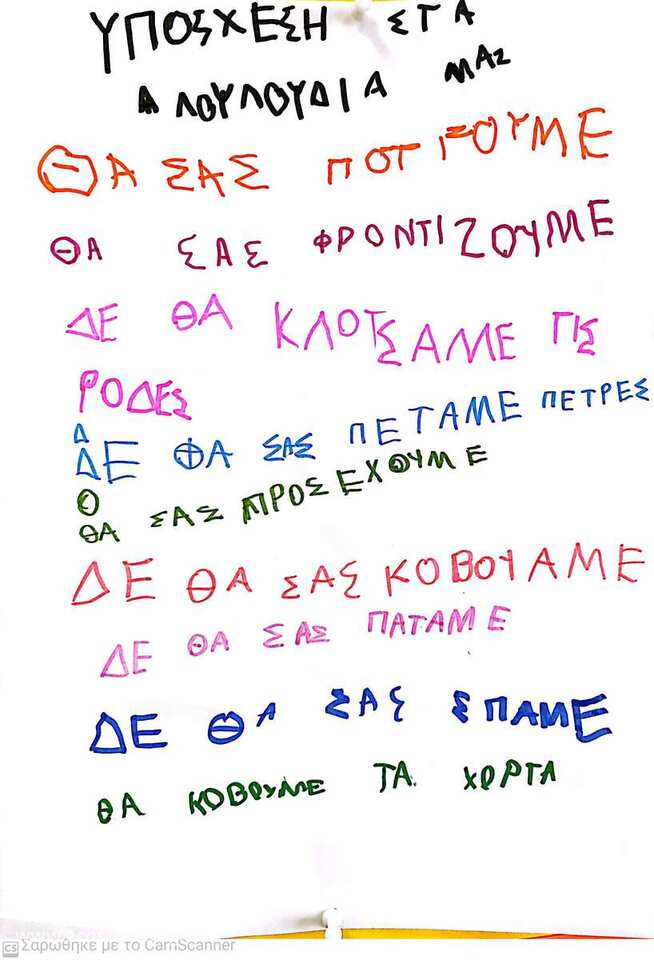 ΥΠΟΣΧΕΣΗ ΣΤΑ
Λ ΛΟΥΛΟΥΔΙΑ ΜΑΣ
ΘΑ ΣΑΣ ΠΟΤΙΖΟΥΜΕ
ΘΑ ΣΑΣ ΦΡΟΝΤΙΖΟΥΜΕ
ΔΕ ΘΑ ΚΛΟΤΣΑΜΕ ΤΙΣ
ΡΟΔΕΣ
Δ
ΔΕ ΘΑ ΣΑΣ ΠΕΤΑΜΕ ΠΕΤΡΕΣ
Θ
ΘΑ ΣΑΣ ΠΡΟΣΕΧΟΥΜΕ
ΔΕ ΘΑ ΣΑΣ ΚΟΒΟΥΑΜΕ
ΔΕ ΘΑ ΣΑΣ ΠΑΤΑΜΕ
ΔΕ ΘΑ ΣΑΣ ΣΠΑΜΕ
ΘΑ ΚΟΒΟΥΜΕ ΤΑ ΧΟΡΤΑ
CS Σαρώθηκε με το CamScanner